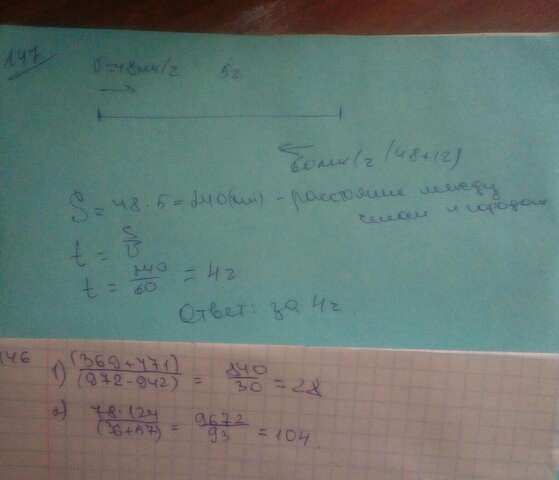 147
V=48км/г 5г
60км/г (48+12)
S = 48 · 5 = 240(км) - расстояние между
селом и городом
t = S/V
t = 240/60 = 4г
Ответ: за 4г.
146
1) (369+471)/(972-942) = 840/30 = 28
2) 78·124/(36+57) = 9672/93 = 104